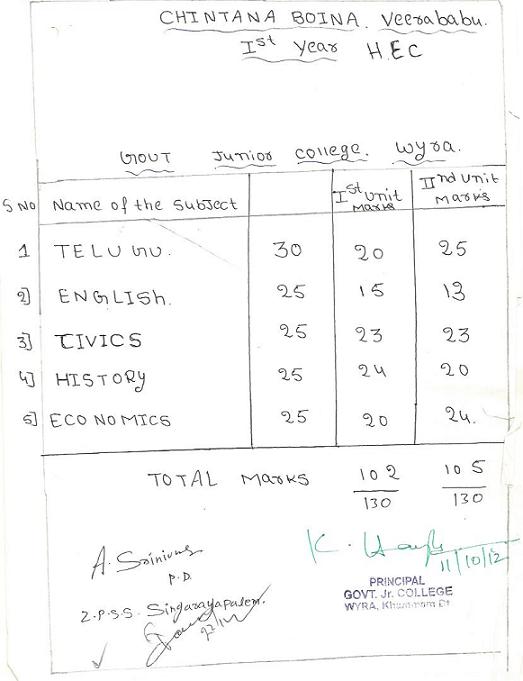 CHINTANA BOINA. Veerababu.
Ist Year H.E.C
GOUT Junior college. Wyra.
S NO Name of the Subject Ist Unit Marks IInd Unit Marks
1 TELUGU. 30 20 25
2] ENGLISH. 25 15 13
3] CIVICS 25 23 23
4] HISTORY 25 24 20
5] ECONOMICS 25 20 24.
TOTAL Marks 102/130 105/130
A. Srinivas
P.D.
Z.P.S.S. Singarayapalem.
11/10/12
PRINCIPAL
GOVT. Jr. COLLEGE
WYRA, Khammam Dt